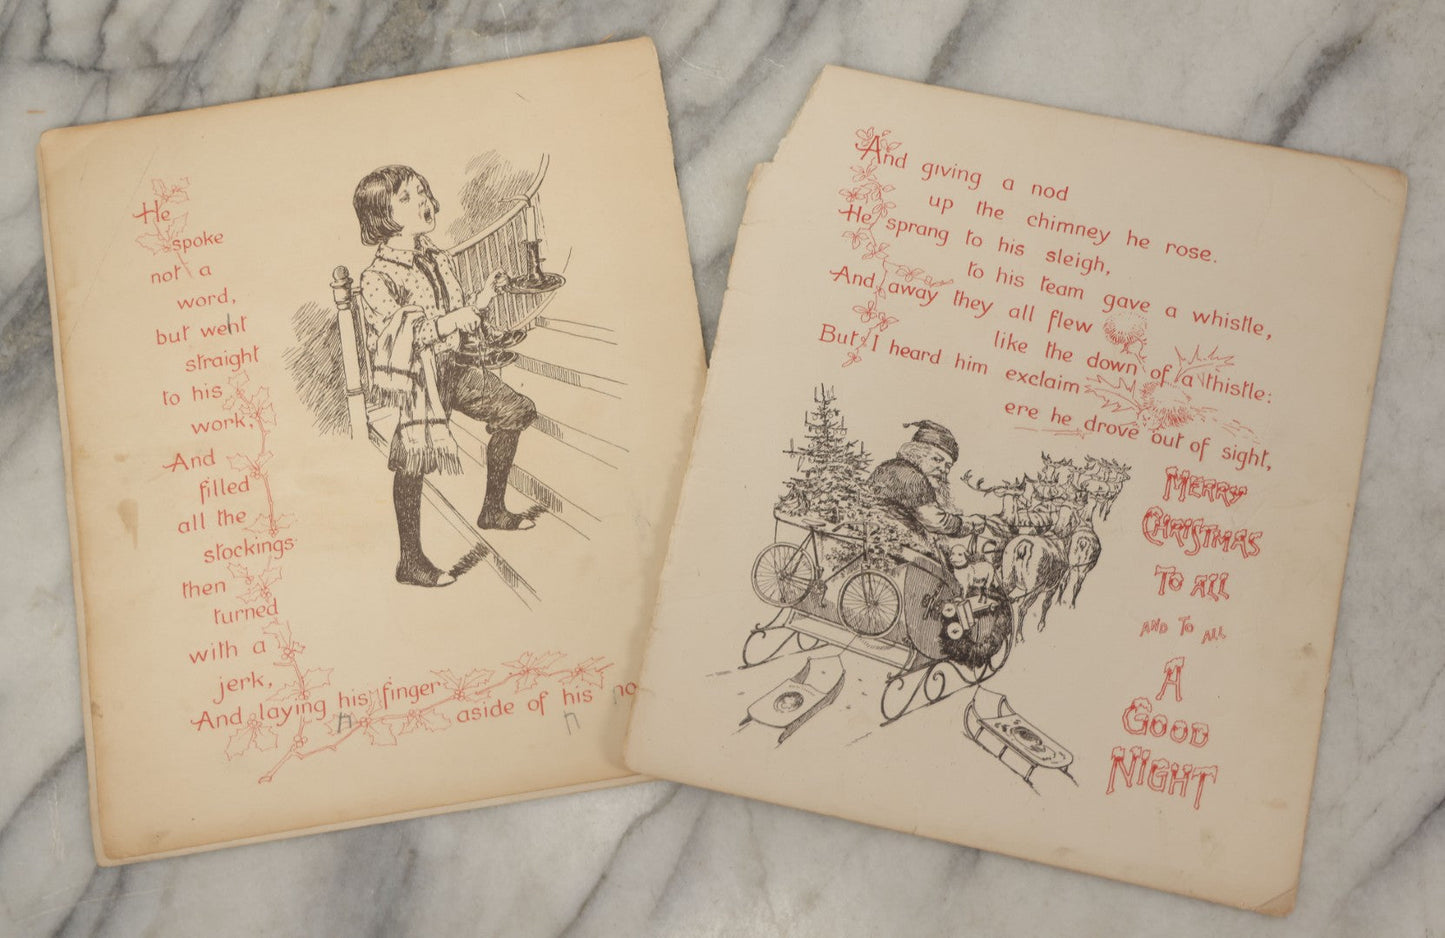 He
spoke
not a
word,
but went
straight
to his
work,
And
filled
all the
stockings
then
turned
with a
jerk,
And laying his finger
aside of his no
n
n
And giving a nod
up the chimney he rose.
He sprang to his sleigh,
to his team gave a whistle,
And away they all flew
like the down of a thistle:
But I heard him exclaim
ere he drove out of sight,
MERRY
CHRISTMAS
TO ALL
AND TO ALL
A
GOOD
NIGHT